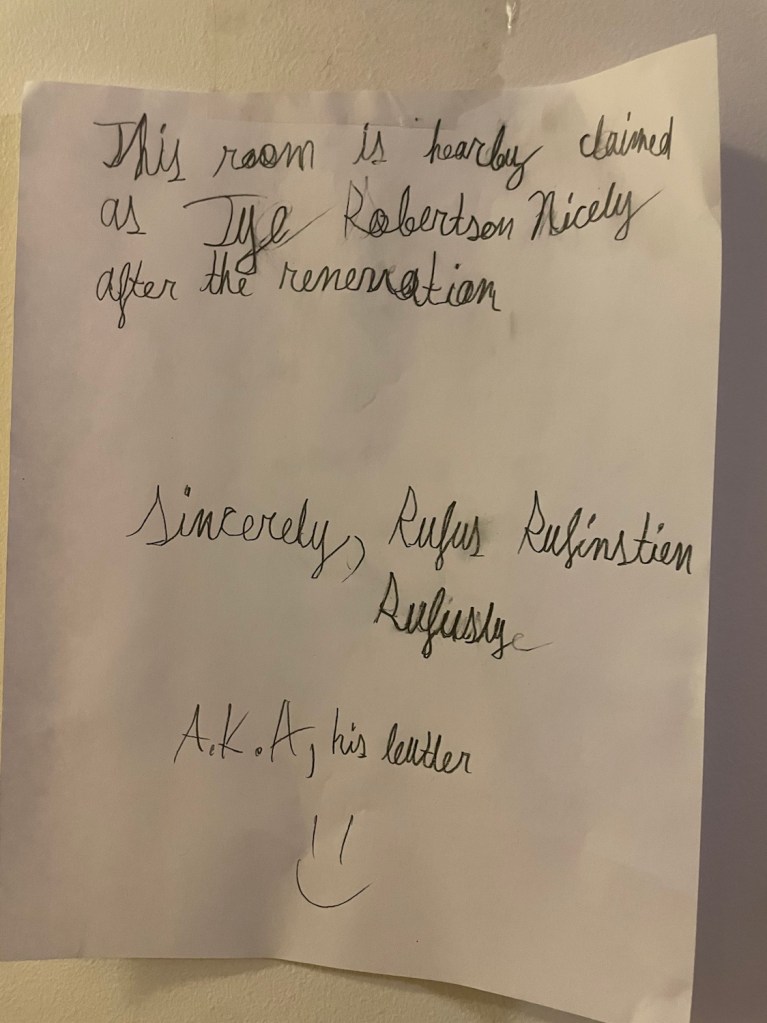 This room is hearby claimed
as Tye Robertson Nicely
after the renervation
Sincerely, Rufus Rufinstien
Rufuslye
A.K.A, his leutler